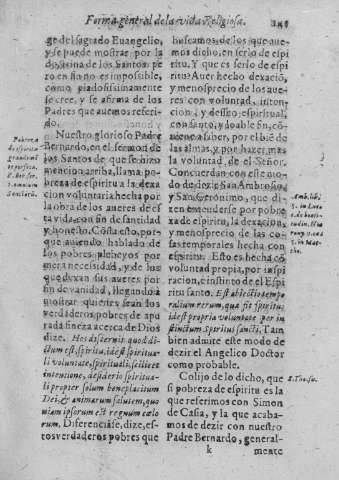 Forma general de la vida Religiosa.
ge del sagrado Euangelio,
y se puede mostrar por la
doctrina de los Santos: pe
ro en fin no es impossible,
como piadosissimamente
se cree, y se afirma de los
Padres que auemos referi-
do.
Nuestro glorioso Padre
Bernardo, en el sermon de
los Santos de que se hizo
mencion arriba, llama po-
breza de espiritu a la dexa
cion voluntaria hecha por
la obra de los aueres de es
ta vida, con fin de santidad
y honesto. Costa esto, por-
que auiendo hablado de
los pobres plebeyos por
mera necesidad, y de los
que dexan sus aueres por
fin de vanidad, llegando a
mostrar quienes seàn los
verdaderos pobres de apu
rada fineza acerca de Dios
dize. Hos discernis quod di
ctum est, spiritu, idest spiritua-
li voluntate, spirituali scilicet
intentione, desiderio spiritua-
li propter solum beneplacitum
Dei, & animarum salutem, quo
niam ipsorum est regnum cœlo
rum. Diferenciase, dize, es-
tos verdaderos pobres que
Pobreza
de espiritu
S. Ber. ser.
1. omnium
Sanctorũ.
buscamos, de los que aue-
mos dicho, en serlo de espi
ritu. Y que es serlo de espi
ritu? Auer hecho dexaciõ,
y menosprecio de los aue-
res con voluntad, inten-
cion, y desseo espiritual,
con santo, y doable fin, cõ-
uiene a saber, por el biẽ de
las almas, y por hazer mas
la voluntad, de el Señor.
Concuerdan con este mo-
do de dezir San Ambrosio,
y San Geronimo, que di-
zen entenderse por pobre
za de espiritu, la dexacion,
y menosprecio de las co-
sas temporales hecha con
espiritu. Esto es hecha cõ
voluntad propia, por inspi
racion, e instinto de el Espi
ritu santo. Est abiectio tempo
ralium rerum, quæ fit spiritu,
idest propria voluntate per in
stinctum spiritus sancti. Tam
bien admite este modo de
dezir el Angelico Doctor
como probable.
Colijo de lo dicho, que
si pobreza de espiritu es la
que referimos con Simon
de Casia, y la que acaba-
mos de dezir con nuestro
Padre Bernardo, general-
k mente
Amb. lib.
5. in Luc.
S. Tho. su.